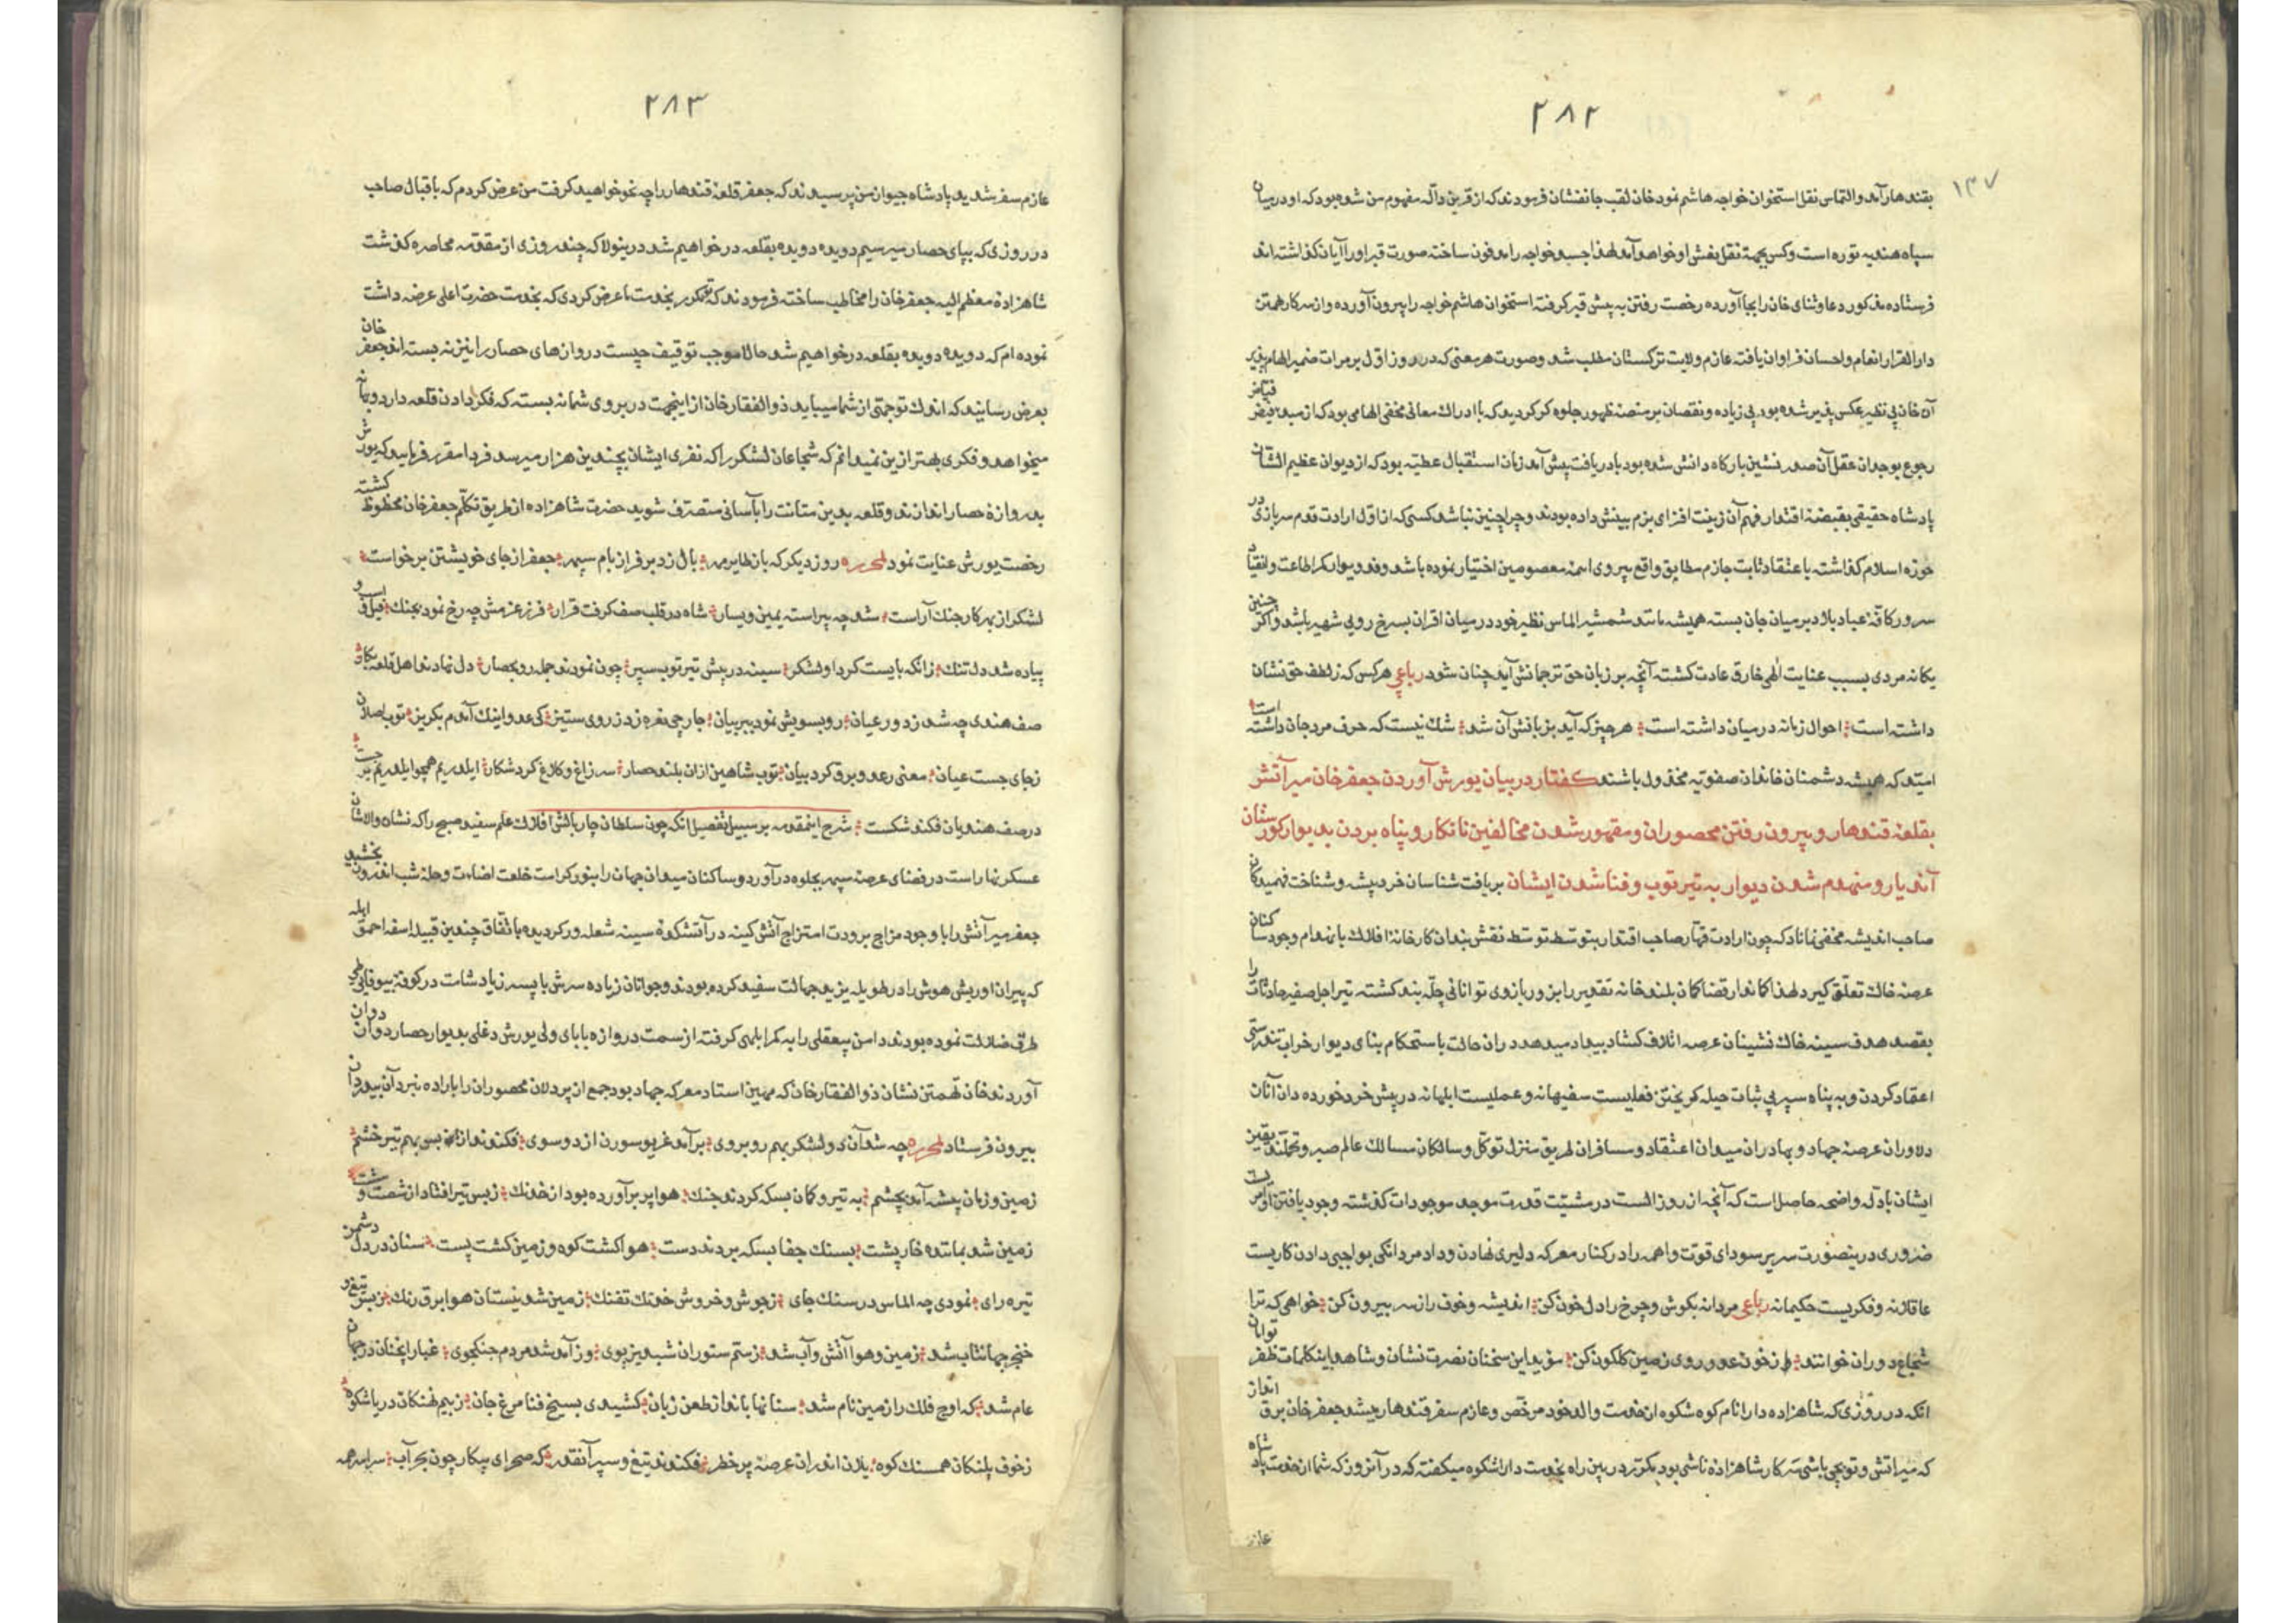 ۲۸۲
۱۳۷
بقندهار آمد والتماس نقل استخوان خواجه هاشم نمود خان لقب جانفشان فرمودند که از قرین داله مفهوم من شده بود که او در میان
سپاه هندیه توره است وکس بجهة نقل نعش او خواهد آمد لهذا جسد خواجه را مدفون ساخته صورت قبر او را آیان گذاشته اند
فرستاده مذکور دعا وثنای خان را بجا آورده رخصت رفتن به پیش قبر گرفته استخوان هاشم خواجه را بیرون آورده و از سرکار همتن
دار القرار انعام واحسان فراوان یافته عازم ولایت ترکستان مطلب شد وصورت هر معنی که در روز اول بر مرات ضمیر الهام پذیر
آن خان بی نظیر عکس پذیر شده بود بی زیاده و نقصان بر منصه ظهور جلوه گر گردید که با ادراك معانی مخفی الهامی بود که از مبدء فیض فیاض
رجوع بوجدان عقل آن صدر نشین بارکاه دانش شده بود با دریافت پیش آمد زبان استقبال عطیه بود که از دیوان عظیم الشان
پادشاه حقیقی بقبضهٔ اقتدار فهم آن زینت افزای بزم بینش داده بودند وچرا چنین نباشد کسی که از اول ارادت قدم سربازی در
حوزه اسلام گذاشته باعتقاد ثابت جازم مطابق واقع پیروی ائمه معصومین اختیار نموده باشد وفدویوار کمر اطاعت وانقیاد
سرور کافهٔ عباد بلاد بر میان جان بسته همیشه مانند شمشیر الماس نظیر خود در میان اقران بسرخ رویی شهیر باشد واکر چنین
یکانه مردی بسبب عنایت الهی خارق عادت کشته آنچه بر زبان حق ترجمانش آید چنان شود رباعی هر کس که ز لطف حق نشان
داشته است احوال زمانه در میان داشته است هر چیز که آید بزبانش آن شد شك نیست که حرف مرد جان داشته است
امید که همیشه دشمنان خاندان صفویه مخذول باشند کفتار در بیان یورش آوردن جعفر خان میر آتش
بقلعهٔ قندهار و بیرون رفتن محصوران ومقهور شدن مخالفین نابکار و پناه بردن بدیوار کورستان
آندیار و منهدم شدن دیوار به تیر توب وفنا شدن ایشان بریافت شناسان خرد پیشه وشناخت فهمیدکان
صاحب اندیشه مخفی نماناد که چون ارادت قهار صاحب اقتدار بتوسط توسط نقش بندان کارخانهٔ افلاك بانهدام وجود ساکنان
عرصهٔ خاك تعلق کیرد لهذا کاندار قضا کمان بلند خانه تقدیر را بزور بازوی توانائی چله بند کشته تیر اجل صفیر حادثات را
بقصد هدف سینه خاك نشینان عرصه اتلاف کشاد بیداد میدهد در ان حالت باستحکام بنای دیوار خراب تندرستی
اعتماد کردن و به پناه سپر بی ثبات حیله کریختن فعلیست سفیهانه وعملیست ابلهانه در پیش خرد خورده دان آنان
دلاوران عرصهٔ جهاد و بهادران میدان اعتقاد و مسافران طریق منزل توکل وسالکان مسالك عالم صبر وتحمل یقین
ایشان بادلّه واضحه حاصل است که آنچه از روز الست در مشیت قدرت موجد موجودات گذشته وجود یافتن او امر
ضروری درینصورت سر پر سودای قوت واهمه را در کنار معرکه دلیری نهادن وداد مردانگی بواجبی دادن کاریست
عاقلانه و فکریست حکیمانه رباعی مردانه بکوش وچرخ را دل خون کن اندیشه وخوف را ز سر بیرون کن خواهی که ترا
شجاع دوران خوانند از خون عدو روی زمین کلکون کن مؤید این سخنان نصرت نشان وشاهد اینکلمات ظفر توامان
انکه در روزی که شاهزاده دارا نام کوه شکوه از خدمت والد خود مرخص وعازم سفر قندهار میشد جعفر خان برق انداز
که میر اتش وتوپچی باشی سرکار شاهزاده ناشی بود مکرر در بین راه بخدمت دارا شکوه میکفته که در آنروز که شما از خدمت پادشاه
عازم
۲۸۳
عازم سفر شدید پادشاه جیو از من پرسیدند که جعفر قلعه قندهار را چه نحو خواهید کرفت من عرض کردم که باقبال صاحب
در روزی که بپای حصار میرسیم دویده دویده بقلعه در خواهیم شد درینولا که چند روزی از مقدمه محاصره کذشت
شاهزادهٔ معظم الیه جعفر خان را مخاطب ساخته فرمودند که تو مکرر بخدمت ما عرض کردی که بخدمت حضرت اعلی عرضه داشت
نموده ام که دویده دویده بقلعه در خواهیم شد حالا موجب توقیف چیست دروازهای حصار را نیز نه بسته اند جعفر خان
بعرض رسانید که اندك توجهی از شما میباید ذوالفقار خان از اینجهت در بروی شما نه بسته که فکر دادن قلعه دارد وبهانه
میخواهد و فکری بهتر ازین نمیدانم که شجاعان لشکر را که نفری ایشان بچندین هزار میرسد فردا مقرر فرمایید که یورش
بدروازهٔ حصار اندازند وقلعه بدین متانت را بآسانی متصرف شوید حضرت شاهزاده از طریق تکلم جعفر خان محظوظ کشته
رخصت یورش عنایت نمود لمحرره روز دیکر که باز طایر مهر بال زد بر فراز بام سپهر جعفر از جای خویشتن برخواست
لشکر از بهر کار جنك آراست شد چه پیراسته یمین ویسار شاه در قلب صف کرفت قرار فرز عزمش چه رخ نمود بجنك فیل و اسب و
پیاده شد دلتنك زانکه بایست کرد او لشکر سینه در پیش تیر توب سپر چون نمودند جمله رو بحصار دل نهادند اهل قلعه بکار
صف هندی چه شد ز دور عیان رو بسویش نمود ببر بیان جارچی نعره زد ز روی ستیز کی عدو اینك آمدم بکریز توب اصلان
ز جای جست عیان معنی رعد وبرق کرد بیان توب شاهین ازان بلند حصار سر زاغ وکلاغ کرد شکار ایلدریم همچو ایلدریم جست
در صف هندیان فکند شکست شرح اینمقدمه بر سبیل تفصیل انکه چون سلطان چار بالش افلاك علم سفید صبح را که نشان والاشان
عسکر نهار است در فضای عرصه سپهر بجلوه در آورد وساکنان میدان جهان را بنور کرامت خلعت اضاءت وحلهٔ شب اندرون بخشید
جعفر میر آتش را با وجود مزاج برودت امتزاج آتش کینه در آتشکدهٔ سینه شعله ور کردیده باتفاق چندین قبیله سفه احمق ابله
که پیران او ریش هوش را در طویله یزید جهالت سفید کرده بودند وجوانان زیاده سرش با پسر زیاد شامت در کوفهٔ بیوفایی طی
طرق ضلالت نموده بودند دامن بیعقلی را به کمر ابلهی کرفته از سمت دروازه بابای ولی یورش دغلی بدیوار حصار دوان دوان
آوردند خان تهمتن نشان ذوالفقار خان که مهین استاد معرکه جهاد بود جمع از پردلان محصوران را باراده نبرد آن بیدردان
بیرون فرستاد لمحرره چه شد آن دو لشکر بهم روبروی برآمد غریو سورن از دو سوی فکندند از بس بهم تیر خشم
زمین وزمان پشه آمد بچشم به تیر وکمان بسکه کردند جنك هوا پر برآورده بود از خدنك ز بس تیر افتاد از شصت و مشت
زمین شد بمانند خارپشت بسنك جفا بسکه بردند دست هوا کشت کوه وزمین کشت پست سنان در دل دشمن
تیره رای نمودی چه الماس در سنك جای ز جوش وخروش خدنك تفنك زمین شد نیستان هوا برق رنك ز بس تیغ و
خنجر جهانتاب شد زمین وهوا آتش وآب شد ز ستم ستوران شبدیز پوی وز آمد شد مردم جنکجوی غبار انچنان در جهان
عام شد که اوج فلك را زمین نام شد سنانها بانداز طعن زبان کشیدی بسیخ فنا مرغ جان ز بیم نهنکان دریا شکوه
ز خوف پلنکان همسنك کوه یلان اندران عرصهٔ پر خطر فکندند تیغ وسپر آنقدر که صحرای پیکار چون بحر آب سراسر همه